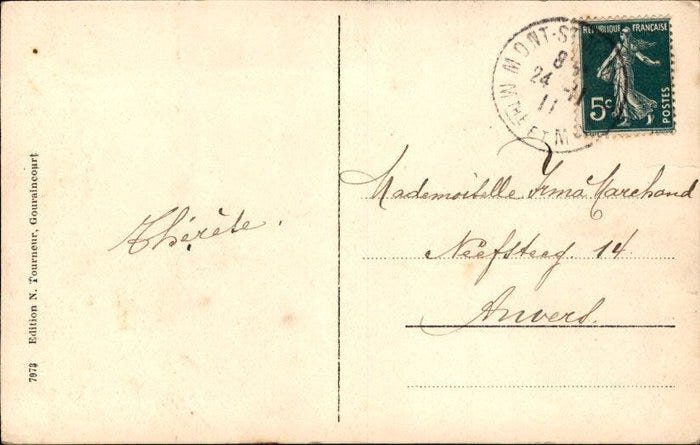 MONT-ST
8
24
11
MTHE ET M
REPUBLIQUE FRANÇAISE
5c
POSTES
Mademoiselle Irma Marchand
Neefsteeg. 14
Anvers.
Thérèse.
7973 Edition N. Tourneur, Gouraincourt